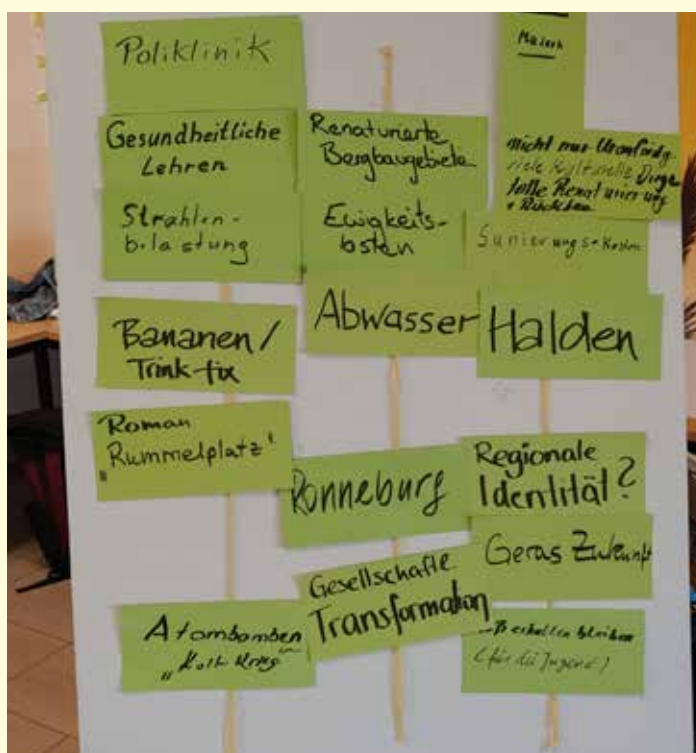 Poliklinik
Gesundheitliche
Lehren
Strahlen-
belastung
Bananen/
Trink-fix
Roman
"Rummelplatz"
Atombomben
"Kalt Krieg"
Renaturierte
Bergbaugebiete
Ewigkeits-
osten
Abwasser
Ronneburg
Gesellschaftl
Transformation
nicht nur
viele Kulturelle Dinge
tolle Renaturierung
+ Rückbau
Sanierungs-Kosten
Halden
Regionale
Identität?
Geras Zukunft
erhalten bleiben
(für die Jugend)